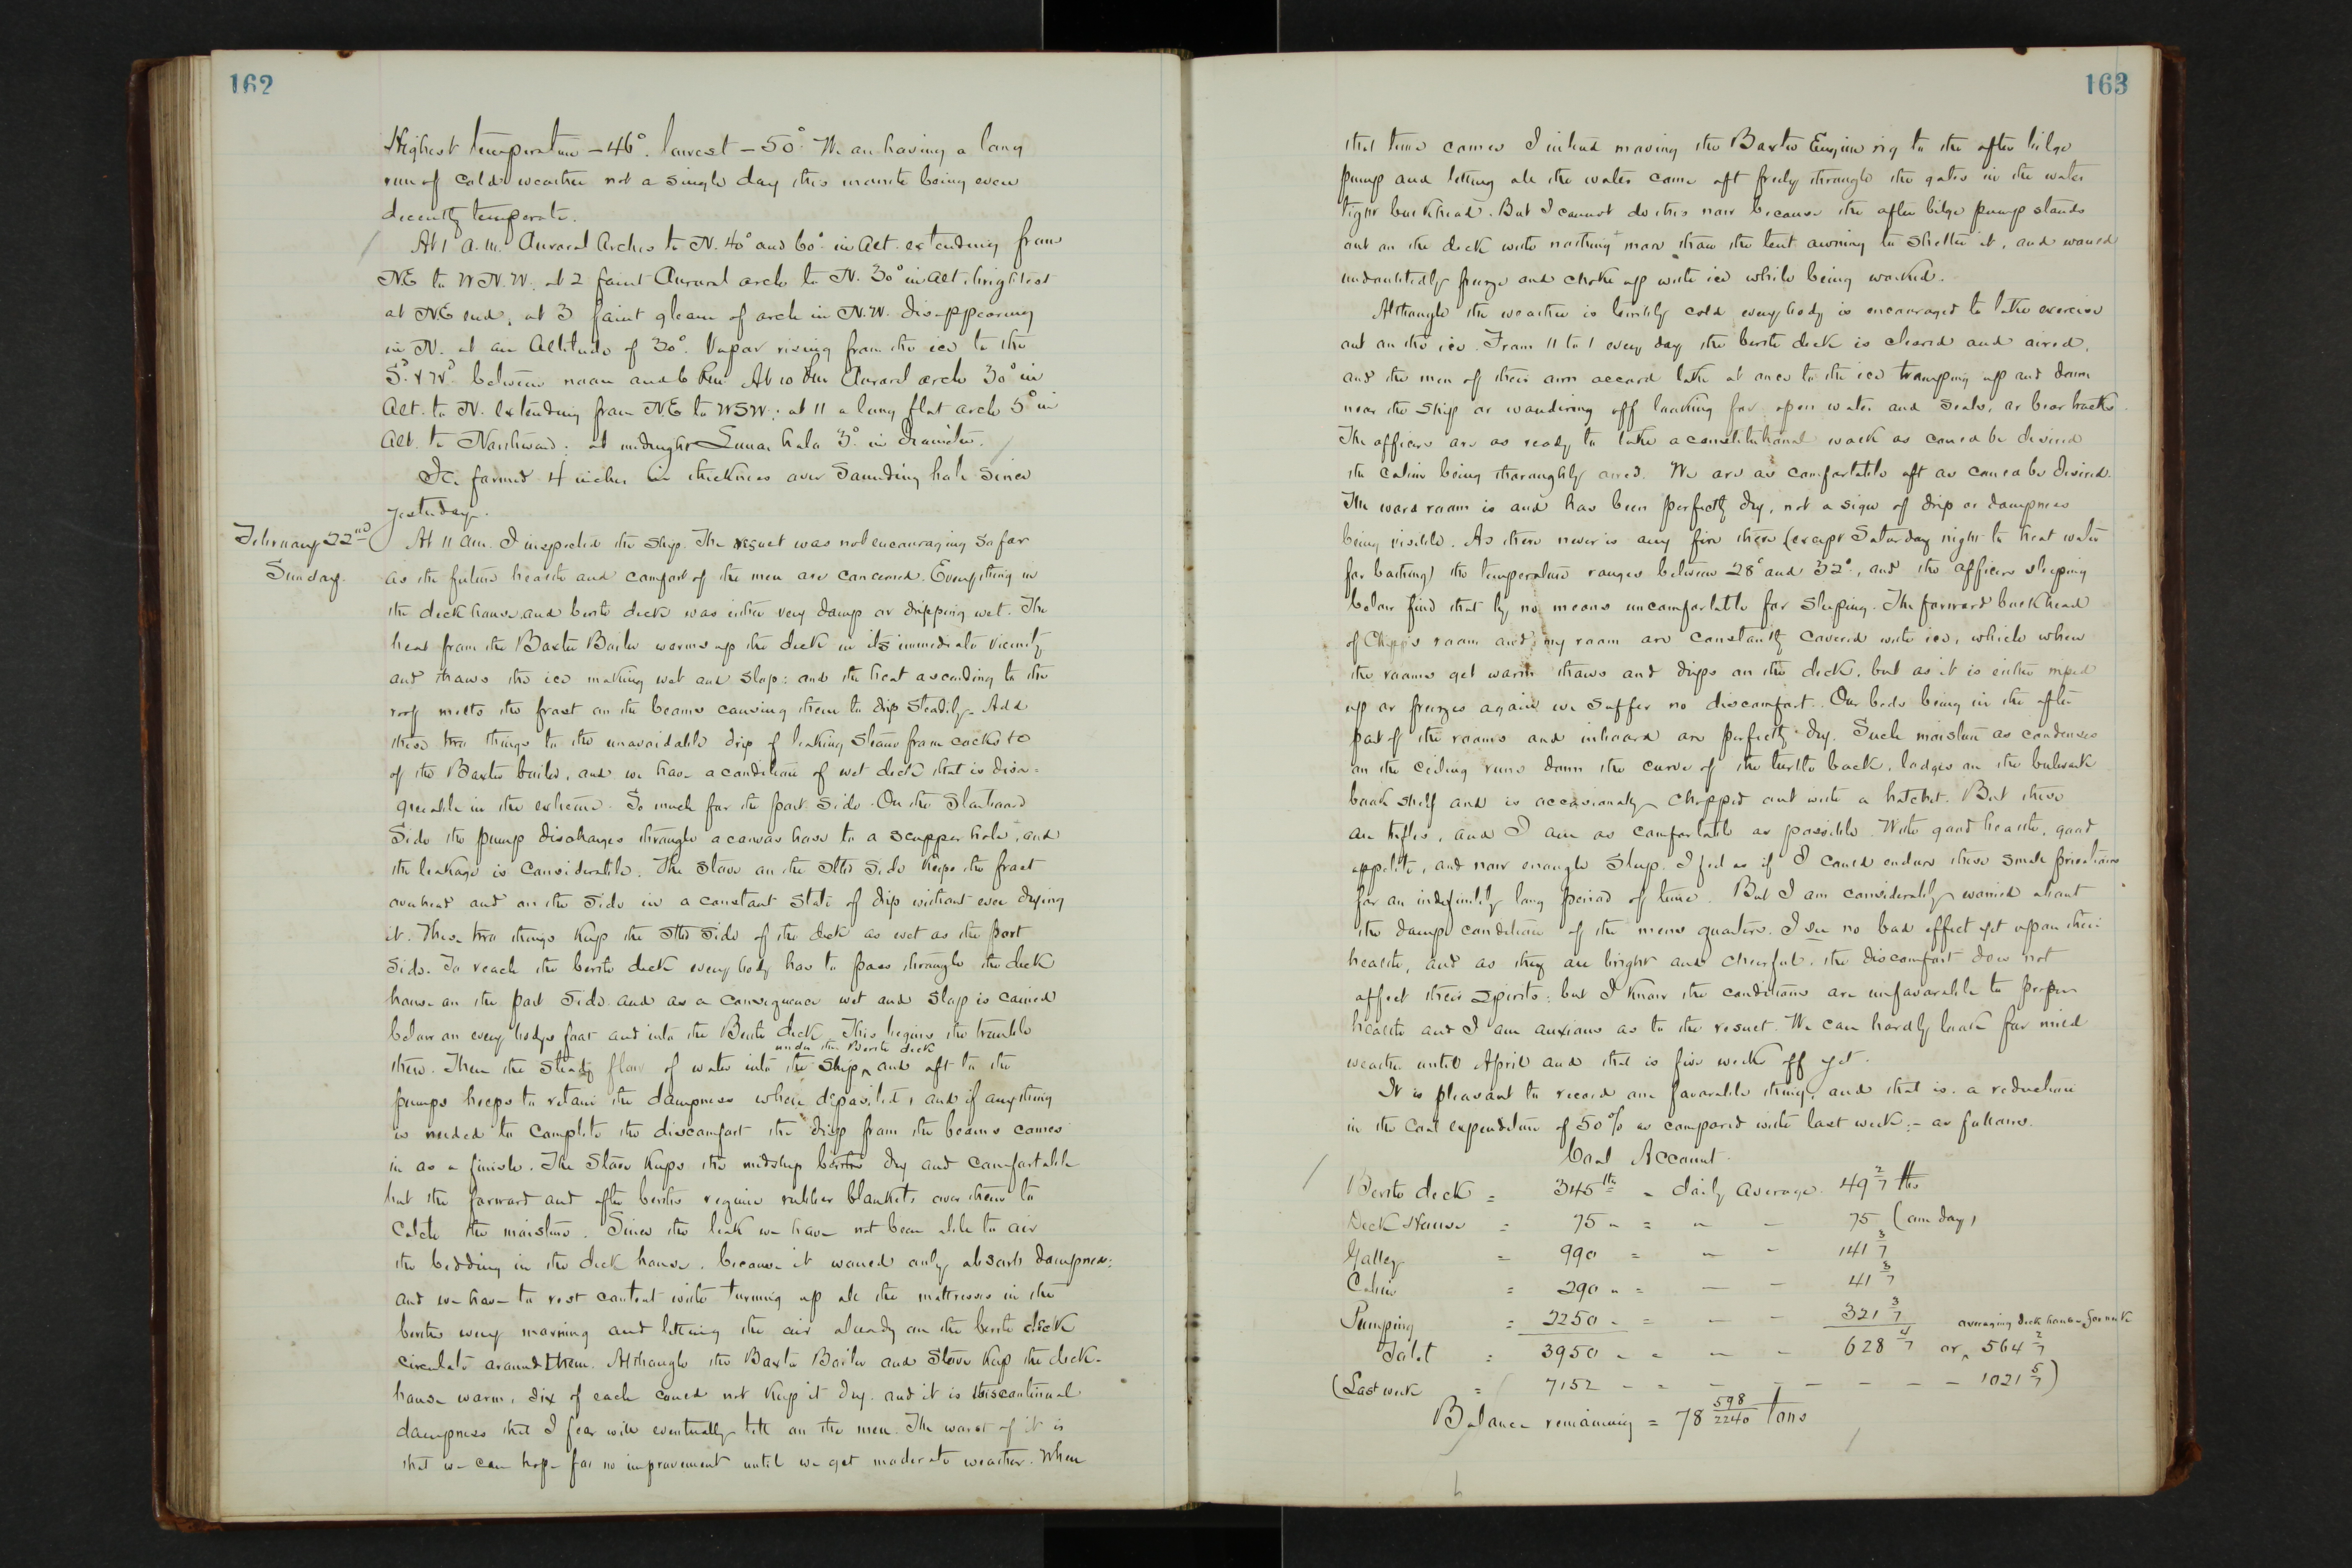 162
Highest temperature -46°. lowest -50°. We are having a long
run of cold weather not a single day this month being even
decently temperate.
At 1 a.m. Auroral Arches to N. 40° and 60° in Alt. extending from
NE to WNW. at 2 faint Auroral arch to N. 30° in Alt. brightest
at NE end, at 3 faint gleam of arch in N.W. disappearing
in N. at an Altitude of 30°. Vapor rising from the ice to the
Sd. & Wd. between noon and 6 P.m. At 10 P.m Auroral arch 30° in
Alt. to N. extending from NE to WSW; at 11 a long flat arch 5° in
Alt. to Northward; at midnight Lunar halo 3° in diameter.
Ice formed 4 inches in thickness over Sounding hole since
yesterday.
February 22nd
Sunday.
At 11 am. I inspected the ship. The result was not encouraging so far
as the future health and comfort of the men are concerned. Everything in
the deck house and berth deck was either very damp or dripping wet. The
heat from the Baxter Boiler warms up the deck in its immediate vicinity
and thaws the ice making wet and slop: and the heat ascending to the
roof melts the frost on the beams causing them to drip steadily. Add
these two things to the unavoidable drip of leaking steam from cocks &c
of the Baxter boiler, and we have a condition of wet deck that is disa=
greeable in the extreme. So much for the port side. On the Starboard
Side the pump discharges through a canvas hose to a scupper hole, and
the leakage is considerable. The Stove on the Stbd Side keeps the frost
overhead and on the side in a constant state of drip without ever drying
it. These two things keep the Stbd Side of the deck as wet as the port
side. To reach the berth deck everybody has to pass through the deck
house on the port side and as a consequence wet and slop is carried
below on every bodys feet and into the Berth deck. This begins the trouble
there. Then the steady flow of water into the ship under the Berth deck and aft to the
pumps keeps to retain the dampness where deposited, and if anything
is needed to complete the discomfort the drip from the beams comes
in as a finish. The Stove keeps the midship berths dry and comfortable
but the forward and after berths require rubber blankets over them to
catch the moisture. Since the leak we have not been able to air
the bedding in the deck house, because it would only absorb dampness:
and we have to rest content with turning up all the mattresses in the
berths every morning and letting the air already on the berth deck
circulate around them. Although the Baxter Boiler and Stove keep the deck-
house warm, six of each could not keep it dry. and it is this continual
dampness that I fear will eventually tell on the men. The worst of it is
that we can hope for no improvement until we get moderate weather. When
163
that time comes I intend moving the Baxter Engine rig to the after bilge
pump and letting all the water come aft freely through the gates in the water
tight bulkhead. But I cannot do this now because the after bilge pump stands
out on the deck with nothing more than the tent awning to shelter it, and would
undoubtedly freeze and choke up with ice while being worked.
Although the weather is terribly cold everybody is encouraged to take exercise
out on the ice. From 11 to 1 every day the berth deck is cleared and aired,
and the men of their own accord take at once to the ice tramping up and down
near the ship or wandering off looking for open water and seals, or bear tracks.
The officers are as ready to take a constitutional walk as could be desired
the cabin being thoroughly aired. We are as comfortable aft as could be desired.
The ward room is and has been perfectly dry, not a sign of drip or dampness
being visible. As there never is any fire there (except Saturday night to heat water
for bathing) the temperature ranges between 28° and 32°, and the officers sleeping
below find that by no means uncomfortable for sleeping. The forward bulkhead
of Chipp's room and my room are constantly covered with ice, which when
the rooms get warm thaws and drips on the deck, but as it is either wiped
up or freezes again we suffer no discomfort. Our beds being in the after
part of the rooms and inboard are perfectly dry. Such moisture as condenses
on the ceiling runs down the curve of the turtle back, lodges on the bulwark
book shelf and is occasionally chopped out with a hatchet. But these
are trifles, and I am as comfortable as possible. With good health, good
appetite, and now enough sleep. I feel as if I could endure these small privations
for an indefinitely long period of time. But I am considerably worried about
the damp condition of the mens quarters. I see no bad effect yet upon their
health, and as they are bright and cheerful, the discomfort does not
affect their spirits; but I know the conditions are unfavorable to proper
health and I am anxious as to the result. We can hardly look for mild
weather until April and that is five weeks off yet.
It is pleasant to record one favorable thing, and that is. a reduction
in the Coal expenditure of 50% as compared with last week:- as follows.
Coal Account.
Berth deck = 345 lbs = daily average. 49 2/7 lbs
Deck House = 75 " = " - 75 (one day)
Galley = 990 = — - 141 3/7
Cabin = 290 " = — - 41 3/7
Pumping = 2250 " = — - 321 3/7
Total = 3950 " = — - 628 4/7 or averaging deck house for week 564 2/7
(Last week = 7152 - = - - - - - - - 1021 5/7)
Balance remaining = 78 598/2240 tons